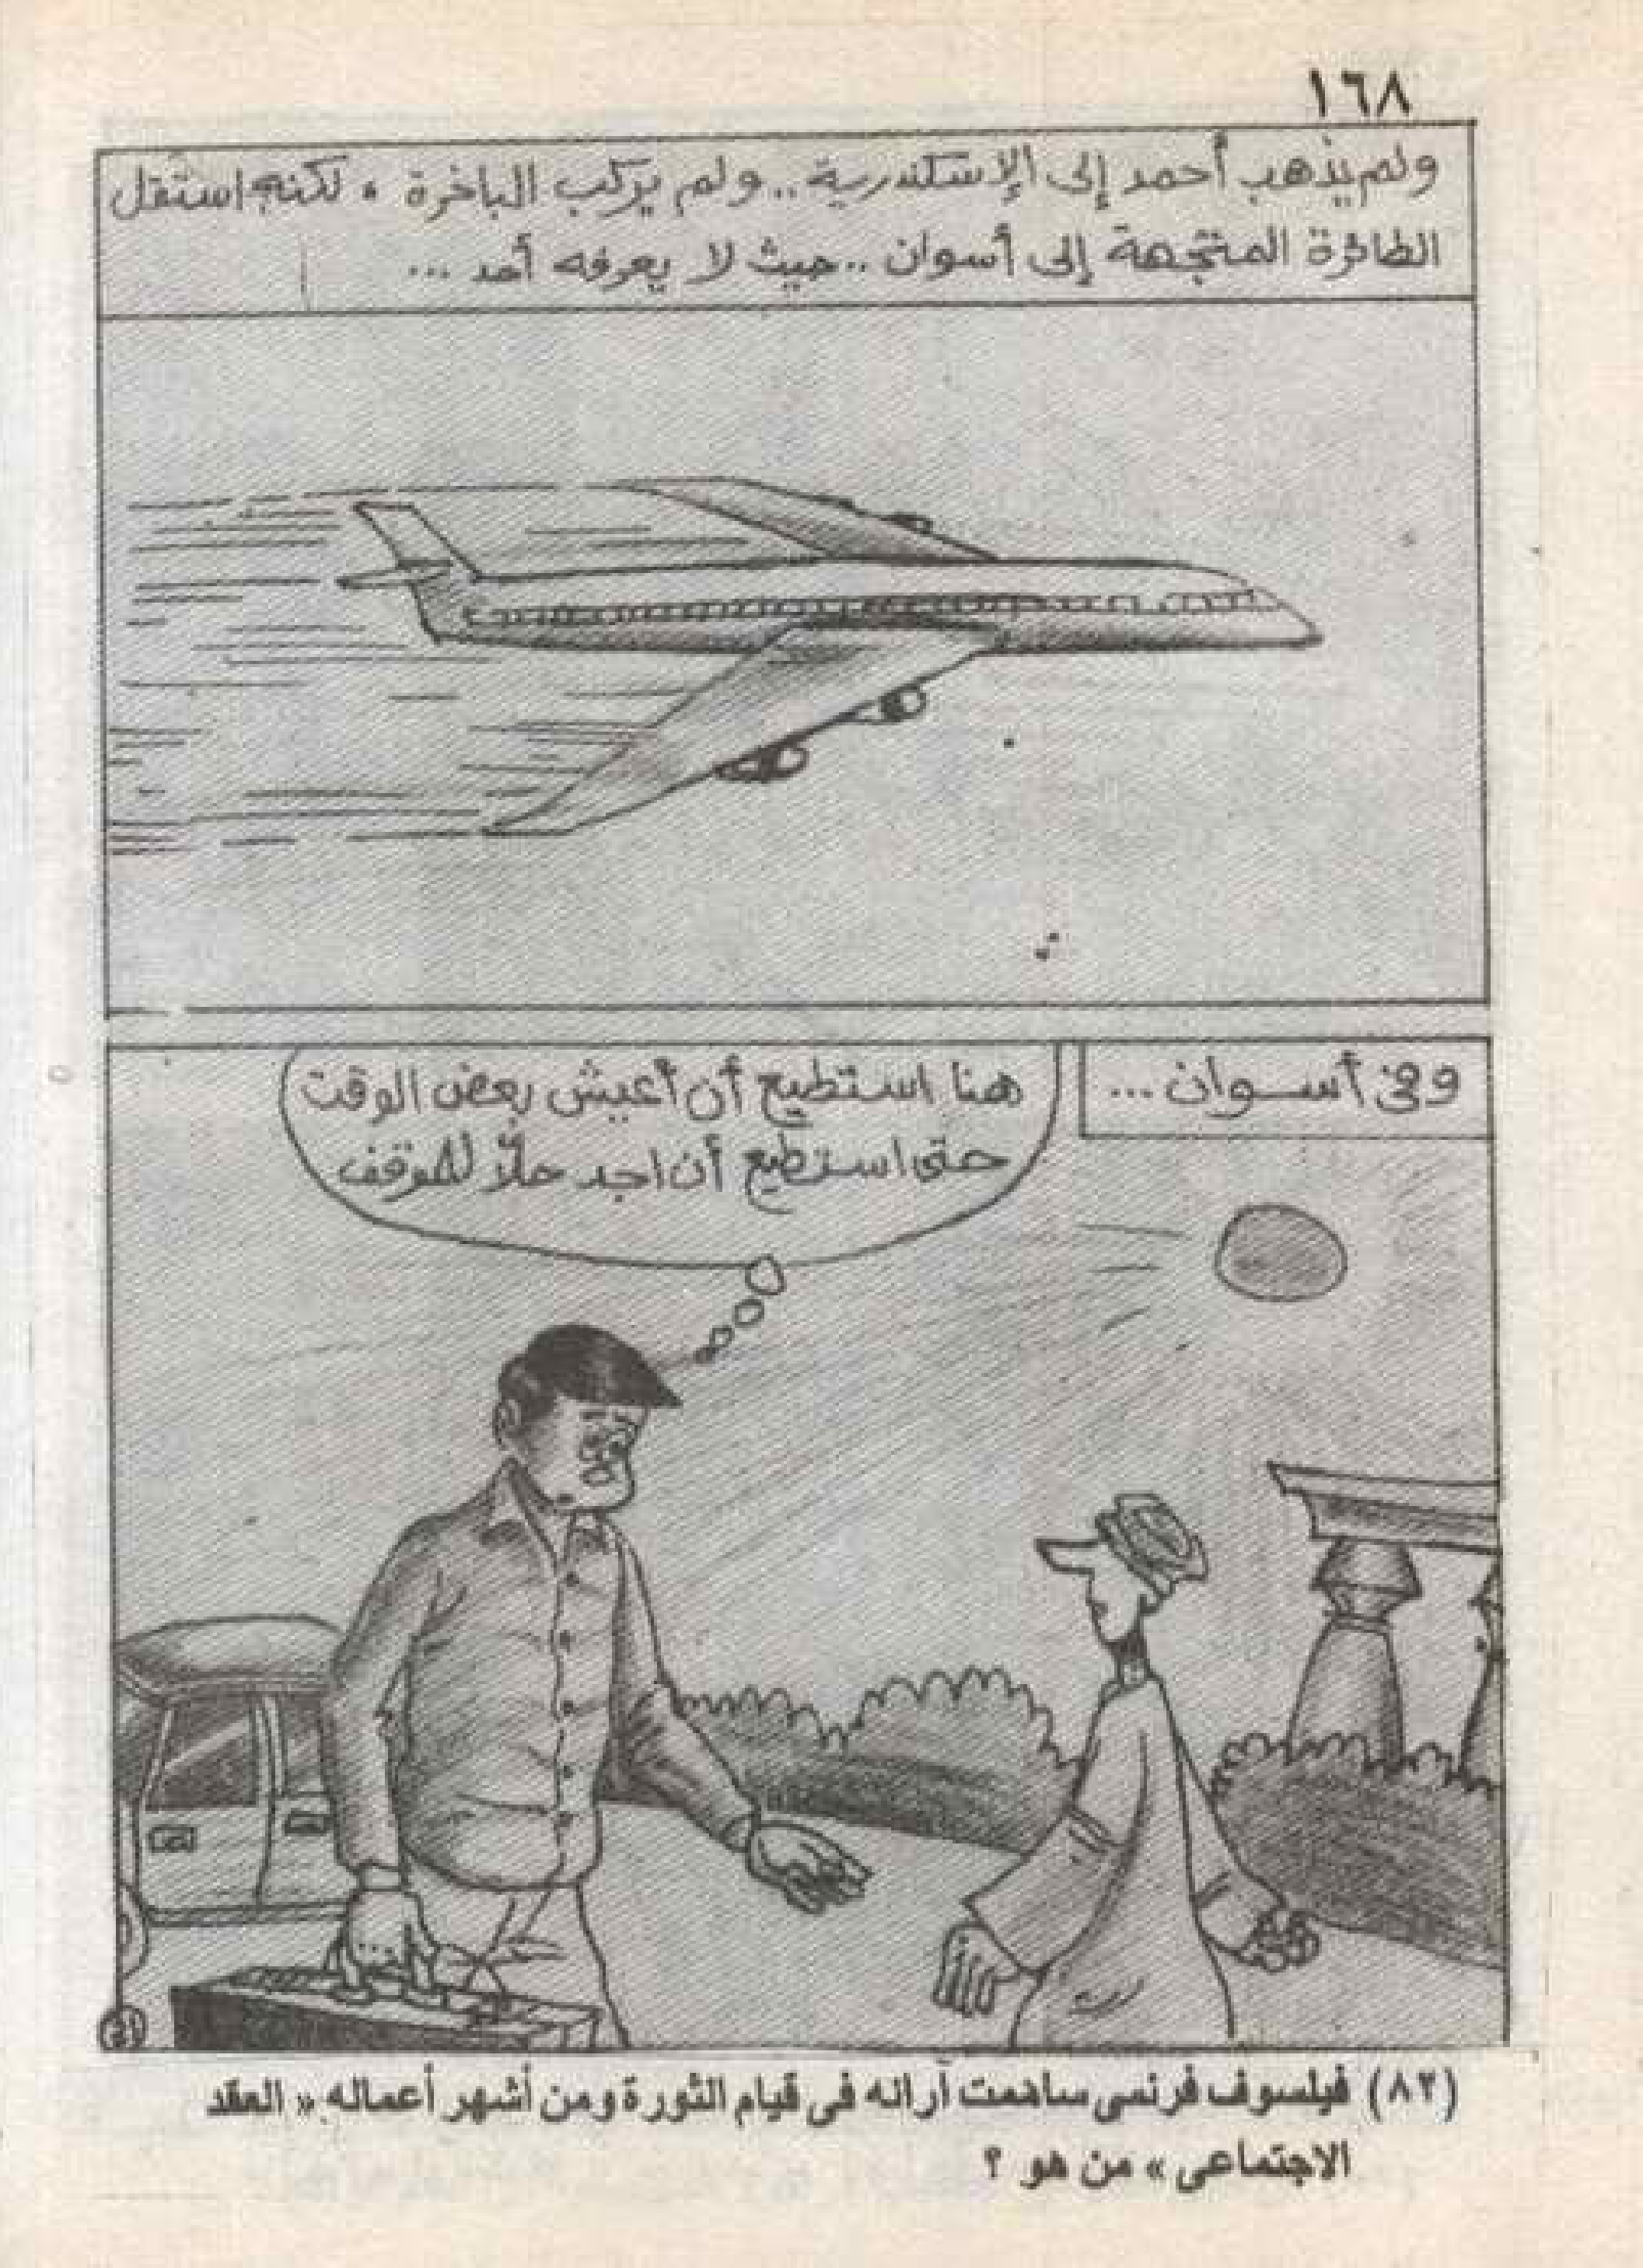 ١٦٨
ولم يذهب أحمد إلى الإسكندرية .. ولم يركب الباخرة ، لكنه استقل
الطائرة المتجهة إلى أسوان .. حيث لا يعرفه أحد ...
وفى أسوان ...
هنا استطيع أن أعيش بعض الوقت
حتى استطيع أن اجد حلاً للموقف
(٨٢) فيلسوف فرنسى ساهمت آرائه فى قيام الثورة ومن أشهر أعماله « العقد
الاجتماعى » من هو ؟